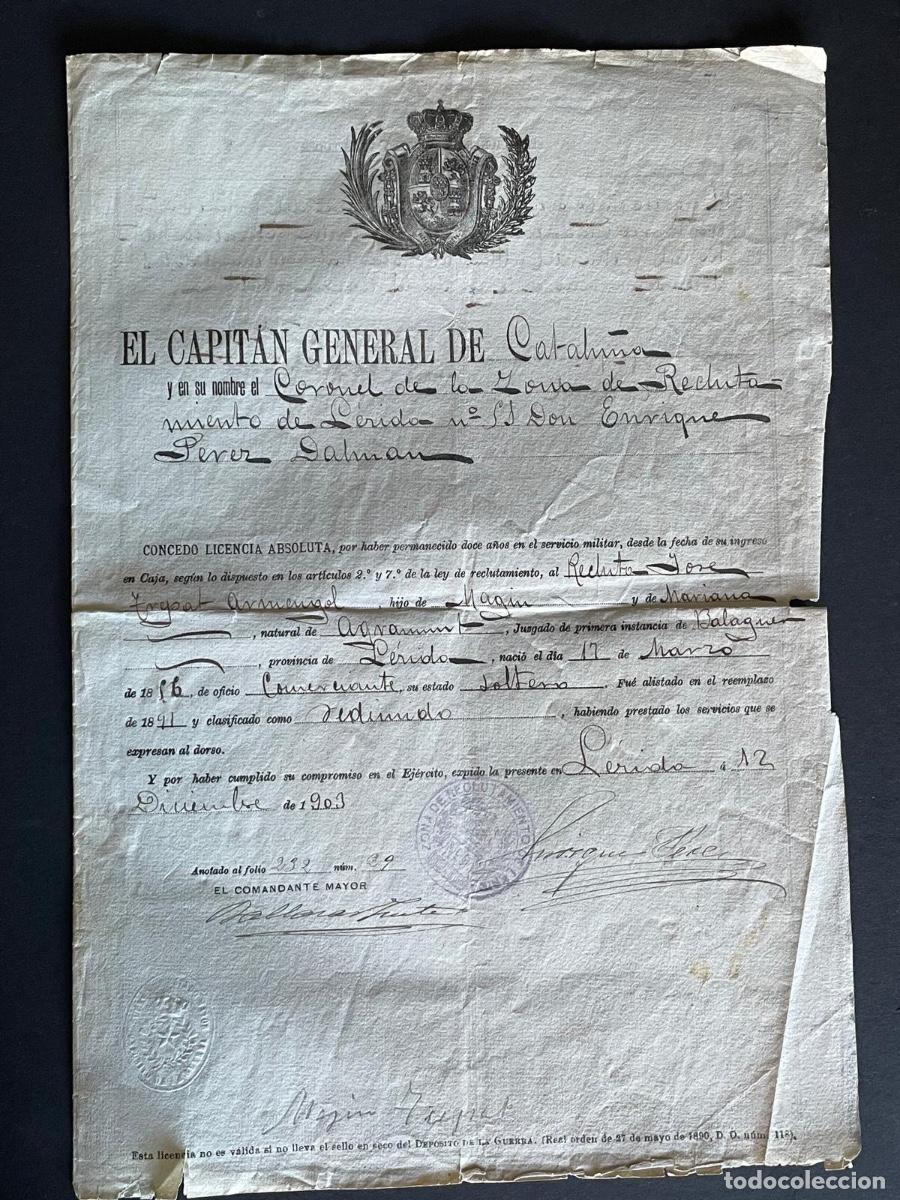 EL CAPITÁN GENERAL DE Cataluña
y en su nombre el Coronel de la Zona de Recluta-
miento de Lérida nº 51 Don Enrique
Perez Dalmau
CONCEDO LICENCIA ABSOLUTA, por haber permanecido doce años en el servicio militar, desde la fecha de su ingreso
en Caja, según lo dispuesto en los artículos 2.º y 7.º de la ley de reclutamiento, al Recluta Jose
Trepat Armengol hijo de Magin y de Mariana
, natural de Agramunt, Juzgado de primera instancia de Balaguer
, provincia de Lérida, nació el día 17 de Marzo
de 18, de oficio Comerciante, su estado soltero. Fué alistado en el reemplazo
de 1891 y clasificado como redimido, habiendo prestado los servicios que se
expresan al dorso.
Y por haber cumplido su compromiso en el Ejército, expido la presente en Lérida á 12
Diciembre de 1903
ZONA DE RECLUTAMIENTO
Anotado al folio 232 núm. 39
Enrique Perez
EL COMANDANTE MAYOR
Magin Trepat
Esta licencia no es válida si no lleva el sello en seco del DEPÓSITO DE LA GUERRA. (Real orden de 27 de mayo de 1890, D. O. núm. 118).
todocoleccion